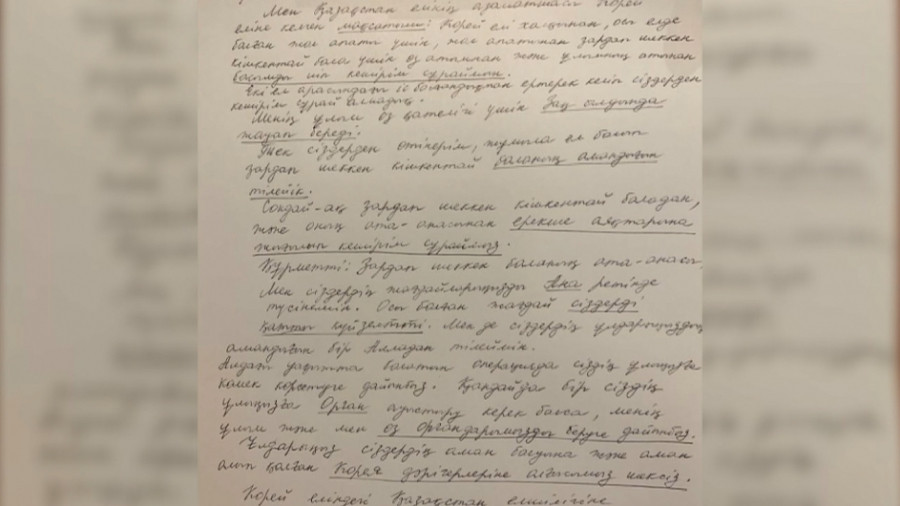 Мен Қазақстан елінің азаматшасы Корей
еліне келген мақсатым: Корей елі халқынан, осы елде
болған жол апаты үшін, жол апатынан зардап шеккен
кішкентай бала үшін өз атынан және ұлымның атынан
басымды иіп кешірім сұраймын.
Екі ел арасындағы болғандықтан ертерек келіп сіздерден
кешірім сұрай алмадық.
Менің ұлым өз қателігі үшін Заң алдында
жауап береді.
Тек сіздерден өтінерім, жұмыла ел болып
зардап шеккен кішкентай баланың амандығын
тілейік.
Сондай-ақ зардап шеккен кішкентай баладан,
және оның ата-анасынан ерекше аяқтарына
жығылып кешірім сұраймыз.
Құрметті: Зардап шеккен баланың ата-анасы
Мен сіздердің жағдайларыңызды Ана ретінде
түсінемін. Осы болған жағдай сіздерді
қатты күйзелтті. Мен де сіздердің ұлдарыңыздың
амандығын бір Алладан тілеймін.
Алдағы уақытта болатын операцияда сіздің ұлыңызға
көмек көрсетуге дайынбыз. Қандайда бір сіздің
ұлыңызға Орган ауыстыру керек болса, менің
ұлым және мен өз органдарымызды беруге дайынбыз.
Ұлдарыңыз сіздердің аман бағуына және аман
алып қалған Корея дәрігерлеріне алғысымыз шексіз.
Корей еліндегі Қазақстан елшілігіне